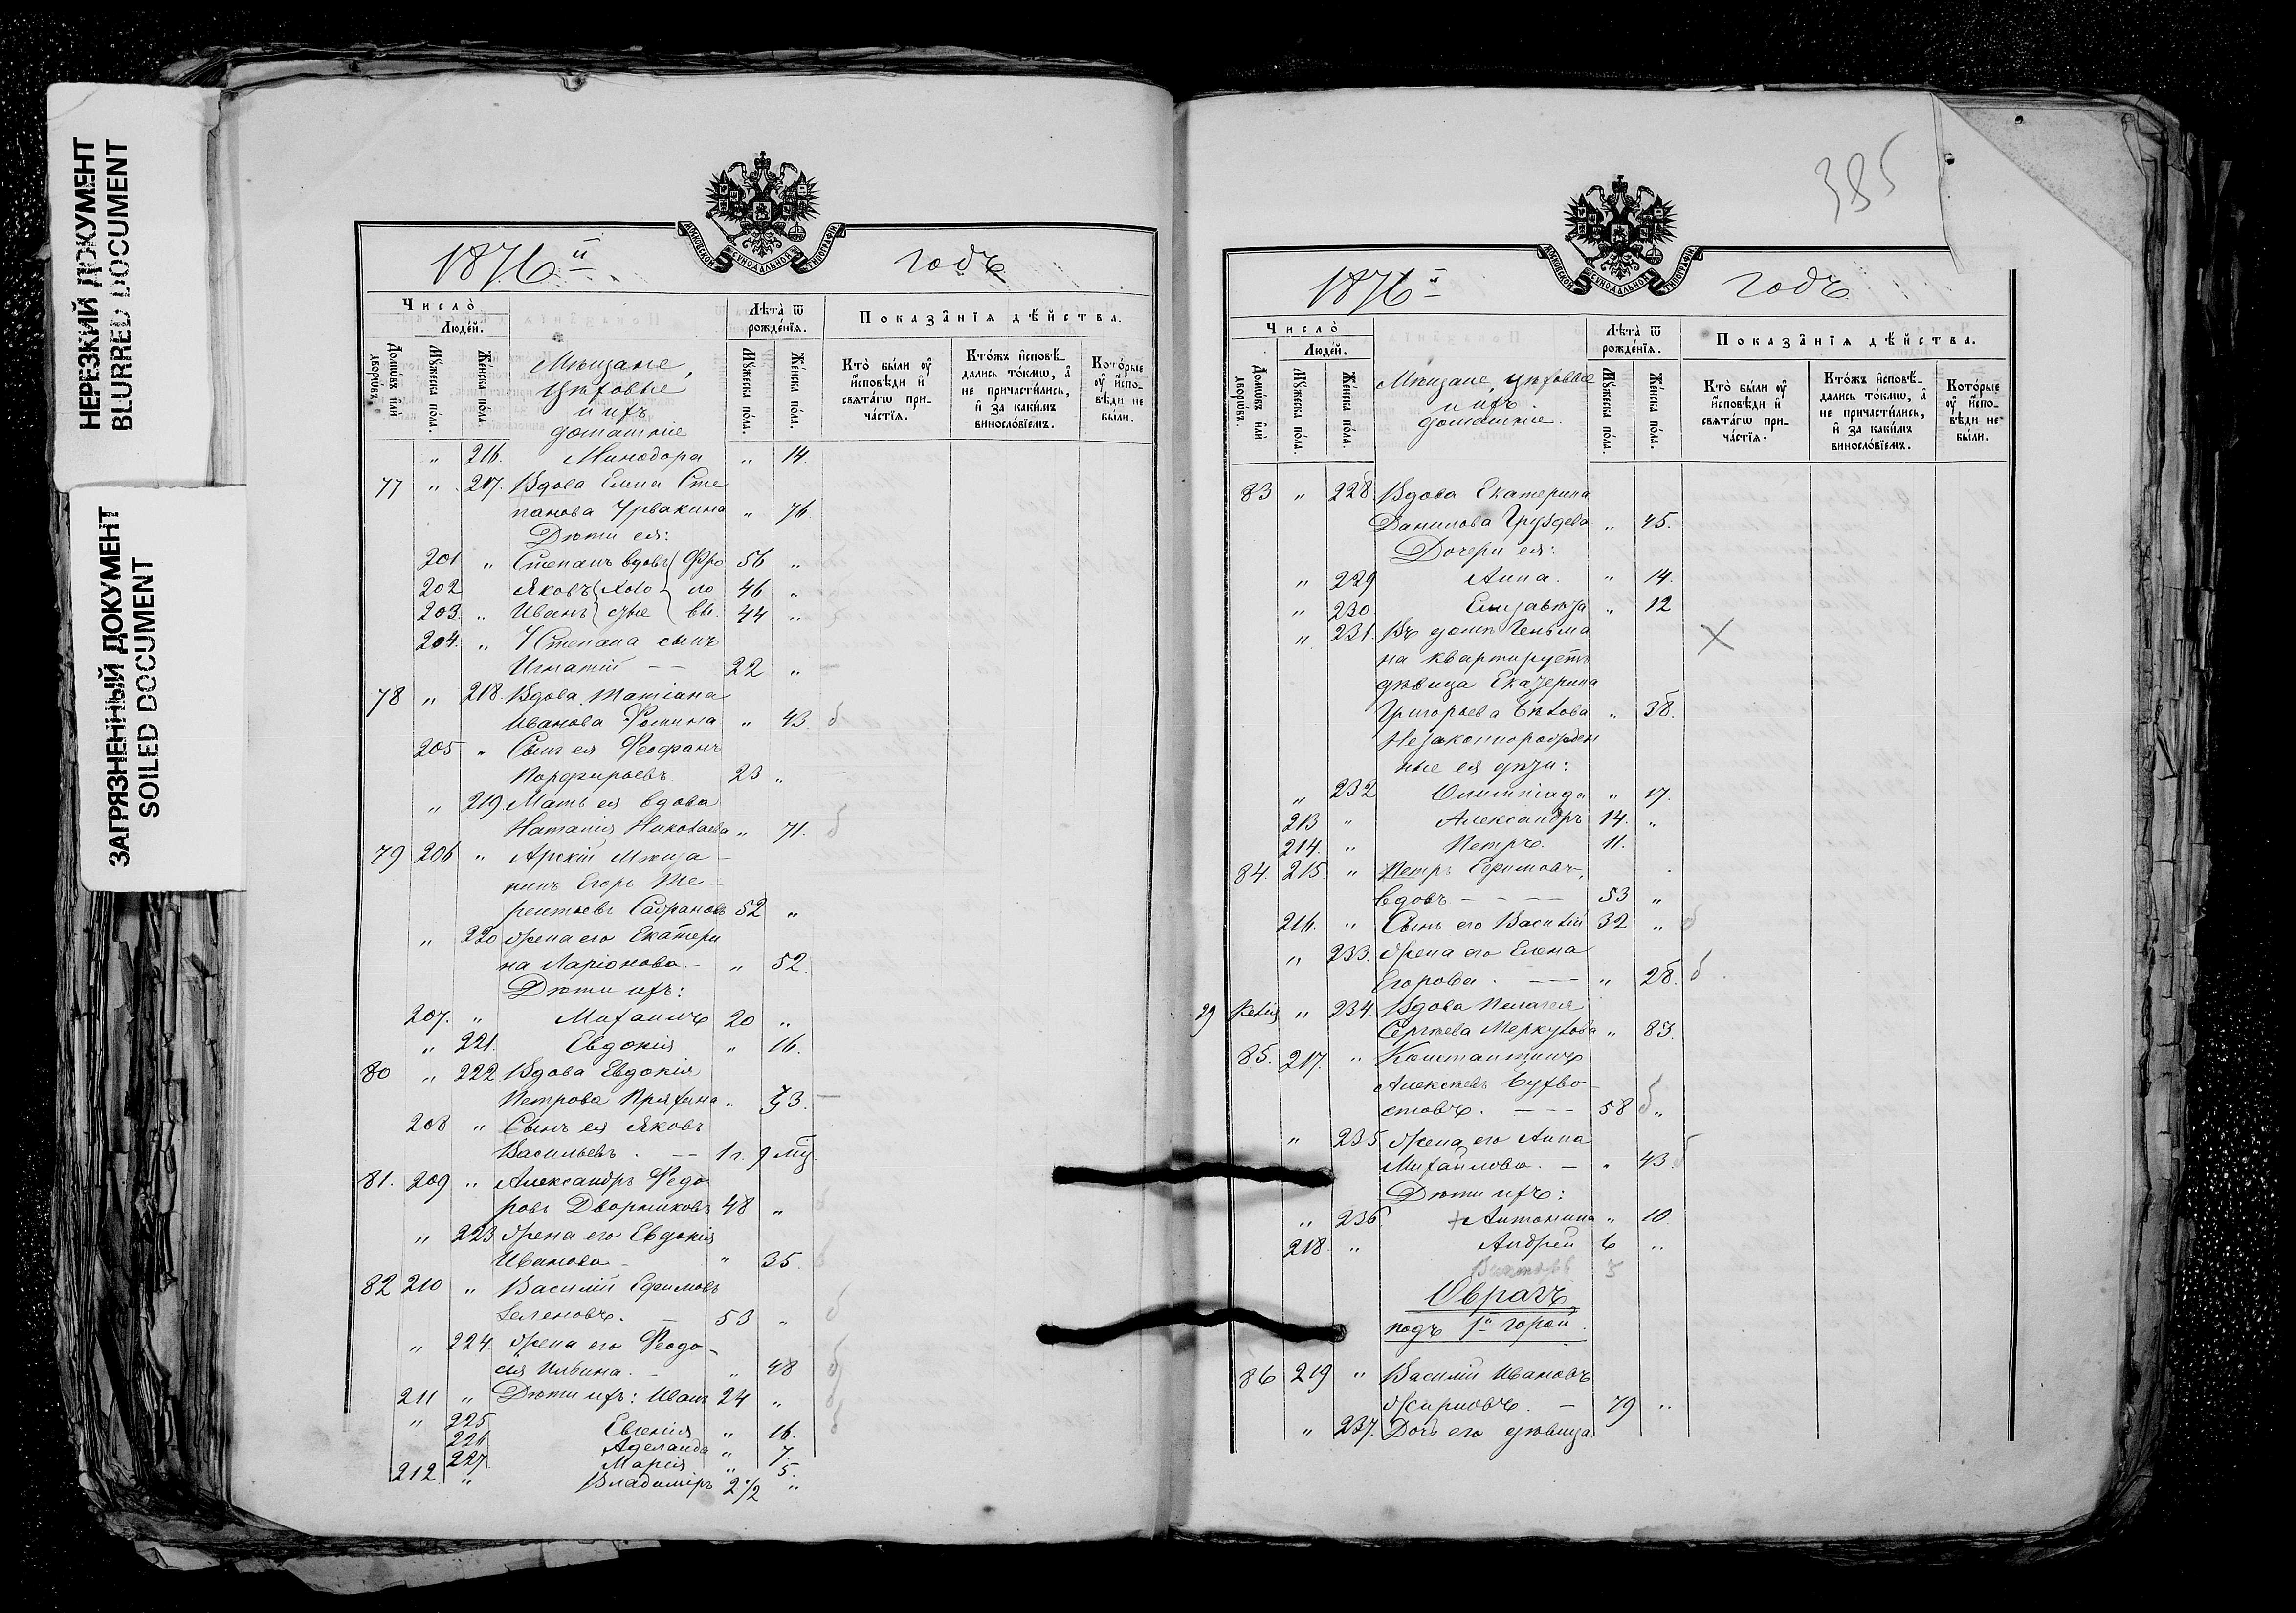 НЕРЕЗКИЙ ДОКУМЕНТ
BLURRED DOCUMENT
ЗАГРЯЗНЕННЫЙ ДОКУМЕНТ
SOILED DOCUMENT
МОСКОВСКОЙ СѴНОДАЛЬНОЙ ТИПОГРАФІИ
1876й годъ
Число̀
Людéй.
Лѣта̀ ѿ рождéнїѧ.
Показа̑нїѧ дѣ́йства.
Домѡ́въ и҆лѝ дворѡ́въ.
Мꙋ́жеска по́ла.
Же́нска по́ла.
Мѣщане,
цѣховые
и ихъ
домашніе
Мꙋ́жеска по́ла.
Же́нска по́ла.
Ктò были ᲂу҆̀ и҆́сповѣди и҆ свѧта́гѡ при-ча́стїѧ.
Кто́жъ и҆сповѣ́-дались то́кмѡ, а҆ не причасти́лись, и҆ за каки́мъ винослóвїемъ.
Кото́рые ᲂу҆̀ и҆́спо-вѣди не были.
„ 216. Минодора „ 14.
77 „ 217. Вдова Елена Сте
панова Урвакина „ 76
Дѣти ея:
201 „ Степанъ вдовъ Фро 56 „
202 Яковъ Холо но 46 „
203. „ Иванъ стые вы. 44 „
204. „ У Степана сынъ
Игнатій — — 22 „
78 „ 218. Вдова Татіана
Иванова Фомина „ 43. б
205 „ Сынъ ея Феофанъ
Порфирьевъ 23 „
„ 219 Мать ея вдова
Наталія Николаева „ 71. б
79 206 „ Арскій мѣща-
нинъ Егоръ Те-
рентьевъ Сафрановъ 52 „
„ 220 Жена его Екатери
на Ларіонова. — „ 52.
Дѣти ихъ:
207. „ Михаилъ 20 „
„ 221. Евдокія „ 16.
80 „ 222 Вдова Евдокія
Петрова Пряхина „ 43. —
208 „ Сынъ ея Яковъ
Васильевъ. — — 1 г. 9 мц
81. 209 „ Александръ Федо
ровъ Дворниковъ 48 „
„ 223 Жена его Евдокія
Иванова — „ 35.
82 210 „ Василій Ефимовъ
Зеленовъ. — 53 „ б
„ 224. Жена его Феодо-
сія Ильина. — „ 48 б
211 „ Дѣти ихъ: Иванъ 24 „ б
„ 225 Евгенія „ 16. б
226 Аделаида „ 7.
227 Марія „ 5.
212 „ Владиміръ 2 ½ „
385
МОСКОВСКОЙ СѴНОДАЛЬНОЙ ТИПОГРАФІИ
1876й годъ
Число̀
Людéй.
Лѣта̀ ѿ рождéнїѧ.
Показа̑нїѧ дѣ́йства.
Домѡ́въ и҆лѝ дворѡ́въ.
Мꙋ́жеска по́ла.
Же́нска по́ла.
Мѣщане, цѣховые
и ихъ
домашніе.
Мꙋ́жеска по́ла.
Же́нска по́ла.
Ктò были ᲂу҆̀ и҆́сповѣди и҆ свѧта́гѡ при-ча́стїѧ.
Кто́жъ и҆сповѣ́-дались то́кмѡ, а҆ не причасти́лись, и҆ за каки́мъ винослóвїемъ.
Кото́рые ᲂу҆̀ и҆́спо-вѣди не были.
83 „ 228. Вдова Екатерина
Данилова Груздева „ 45.
Дочери ея:
„ 229 Анна. „ 14.
„ 230. Елизавета „ 12
„ 231. Въ домѣ Геньма
на квартируетъ
дѣвица Екатерина
Григорьева Бѣлова „ 38.
Незаконнорожден
ные ея дѣти:
„ 232 Олимпіада „ 17.
213 „ Александръ 14. „
214. „ Петръ. 11.
84. 215 „ Петръ Ефимовъ,
вдовъ — — — 53 „
216. „ Сынъ его Василій 32 „ б
„ 233. Жена его Елена
Егорова. — — „ 28. б
29 Келія „ 234. Вдова Пелагея
Сергѣева Меркулова „ 83.
85. 217. „ Константинъ
Алексѣевъ Бухво-
стовъ. — — — 58 „ б
„ 235 Жена его Анна
Михайлова. — „ 43. б
Дѣти ихъ:
„ 236 + Антонина „ 10.
218. „ Андрей 6 „
Викторъ 3
Оврагъ
подъ 1й горой.
86 219 „ Василій Ивановъ
Жирновъ. — 79 „
„ 237. Дочь его дѣвица